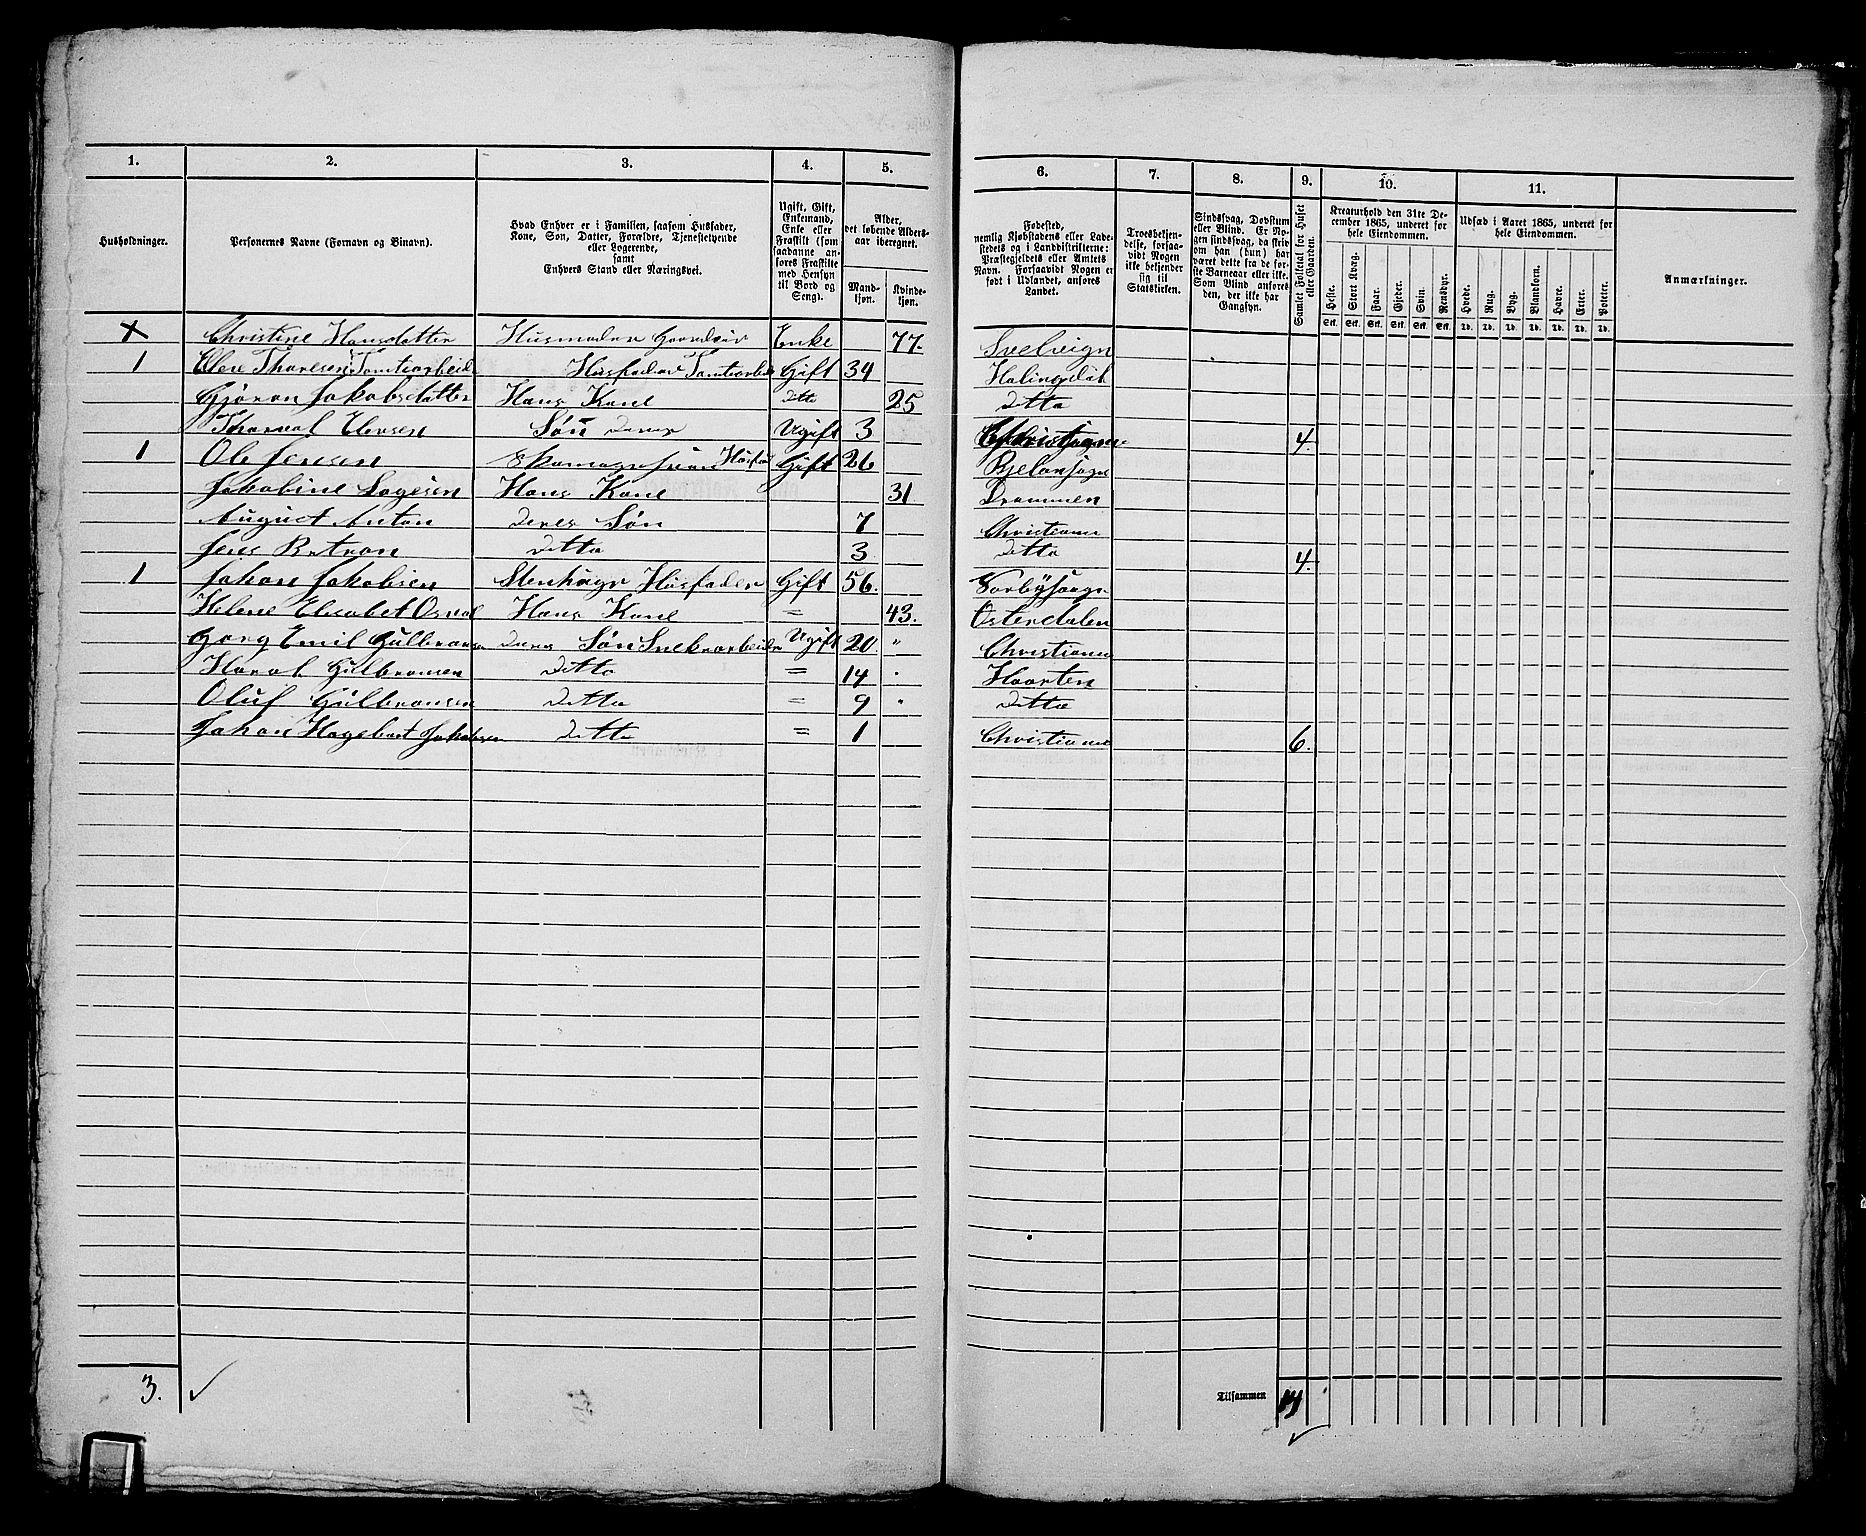 1. 2. 3. 4. 5. 6. 7. 8. 9. 10. 11.
Husholdninger.
Personernes Navne (Fornavn og Binavn).
Hvad Enhver er i Familien, saasom Husfader,
Kone, Søn, Datter, Forældre, Tjenestetyende
eller Logerende,
samt
Enhvers Stand eller Næringsvei.
Ugift, Gift,
Enkemand,
Enke eller
Fraskilt (som
saadanne an-
føres Fraskilte
med Hensyn
til Bord og
Seng).
Alder,
det løbende Alders-
aar iberegnet.
Mand-
kjøn.
Kvinde-
kjøn.
Fødested,
nemlig Kjøbstadens eller Lade-
stedets og i Landdistrikterne:
Præstegjeldets eller Amtets
Navn. Forsaavidt Nogen er
født i Udlandet, anføres
Landet.
Troesbekjen-
delse, forsaa-
vidt Nogen
ikke bekjender
sig til
Statskirken.
Sindssvag, Døvstum
eller Blind. Er No-
gen sindssvag, da skriv
om han (hun) har
været dette fra de før-
ste Barneaar eller ikke.
Som Blind anføres
den, der ikke har
Gangsyn.
Samlet Folketal for Huset
eller Gaarden.
Kreaturhold den 31te De-
cember 1865, underet for
hele Eiendommen.
Heste. Stort Kvæg. Faar. Gjeder. Svin. Rensdyr.
Stk. Stk. Stk. Stk. Stk. Stk.
Udsæd i Aaret 1865, underet for
hele Eiendommen.
Hvede. Rug. Byg. Blandkorn. Havre. Erter. Poteter.
Td. Td. Td. Td. Td. Td. Td.
Anmærkninger.
x Christine Hansdatter Husmoder Enke 77. Svelvign
1 Elen Thoresen Tomtearbeide Husfader Gift 34
Gjøron Jakobsdatter Hans Kone Ditto 25 Ditto
Thorval Elensen Søn Deres Ugift 3 4.
1 Ole Jensen Gift 26
Jakobine Hans Kone 31 Drammen
August Anton Deres Søn 7 Christiania
Jens Ditto 3 Ditto 4.
1 Johan Jakobsen Husfader Gift 56.
Helene Elisabet Hans Kone = 43. Osterdalen
Georg Emil Gulbransen Deres Søn Ugift 20 " Christiania
Haral Gulbransen Ditto = 14 Haarten
Oluf Gulbransen Ditto = 9 " Ditto
Johan Hagebart Jakobsen Ditto = 1 Christiania 6.
3. ✓
Tilsammen 14
✓